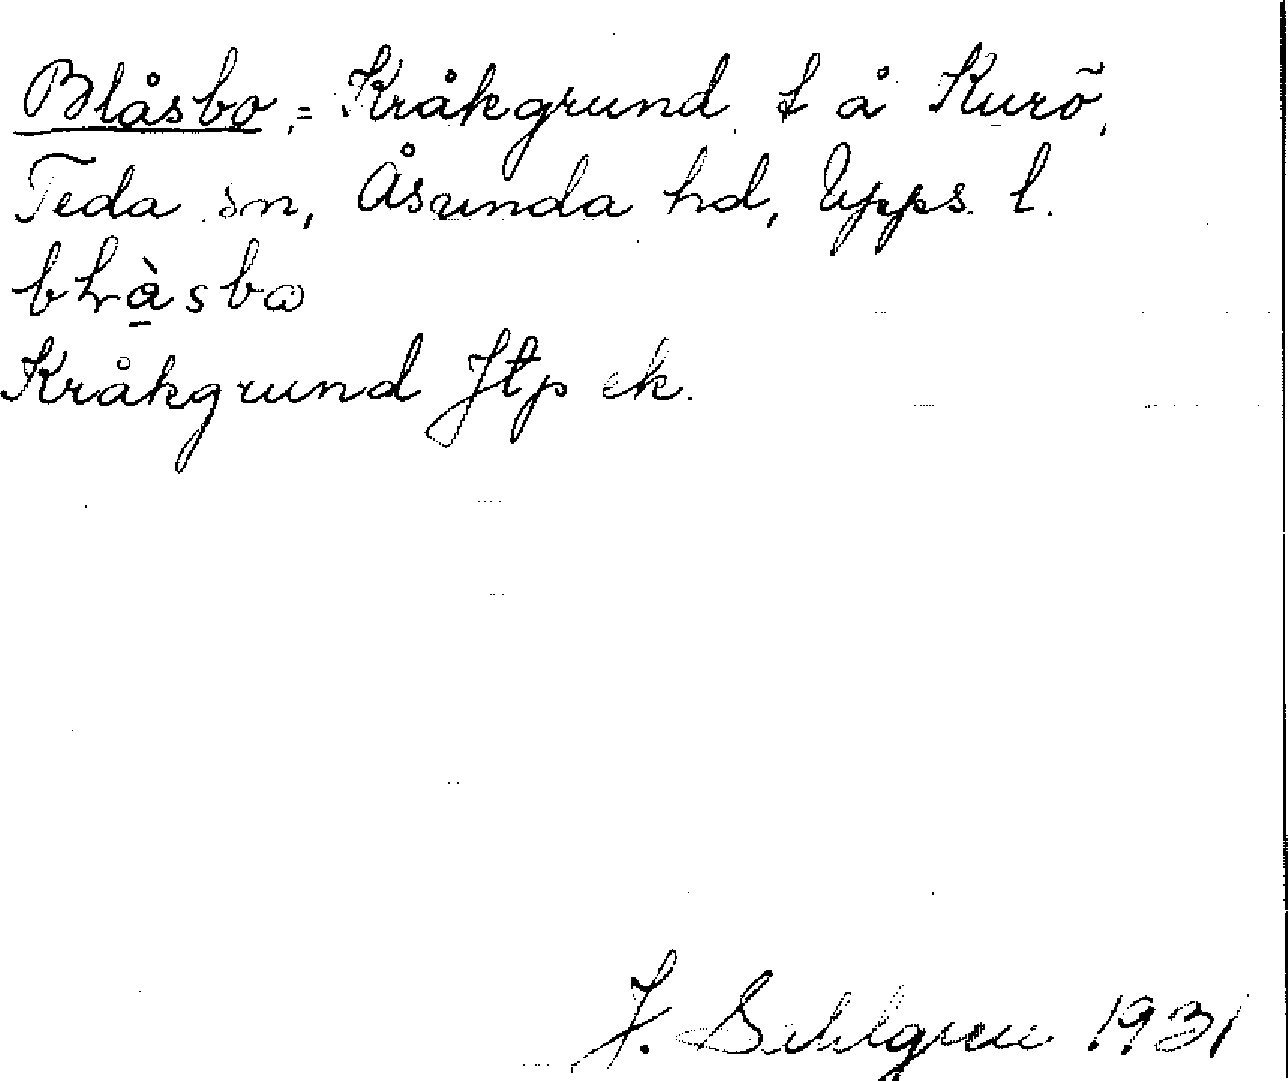 Blåsbo, = Kråkgrund t å Kurö,
Teda sn, Åsunda hd, Upps. l.
Kråkgrund Jtp ek.
J. Sahlgren 1931